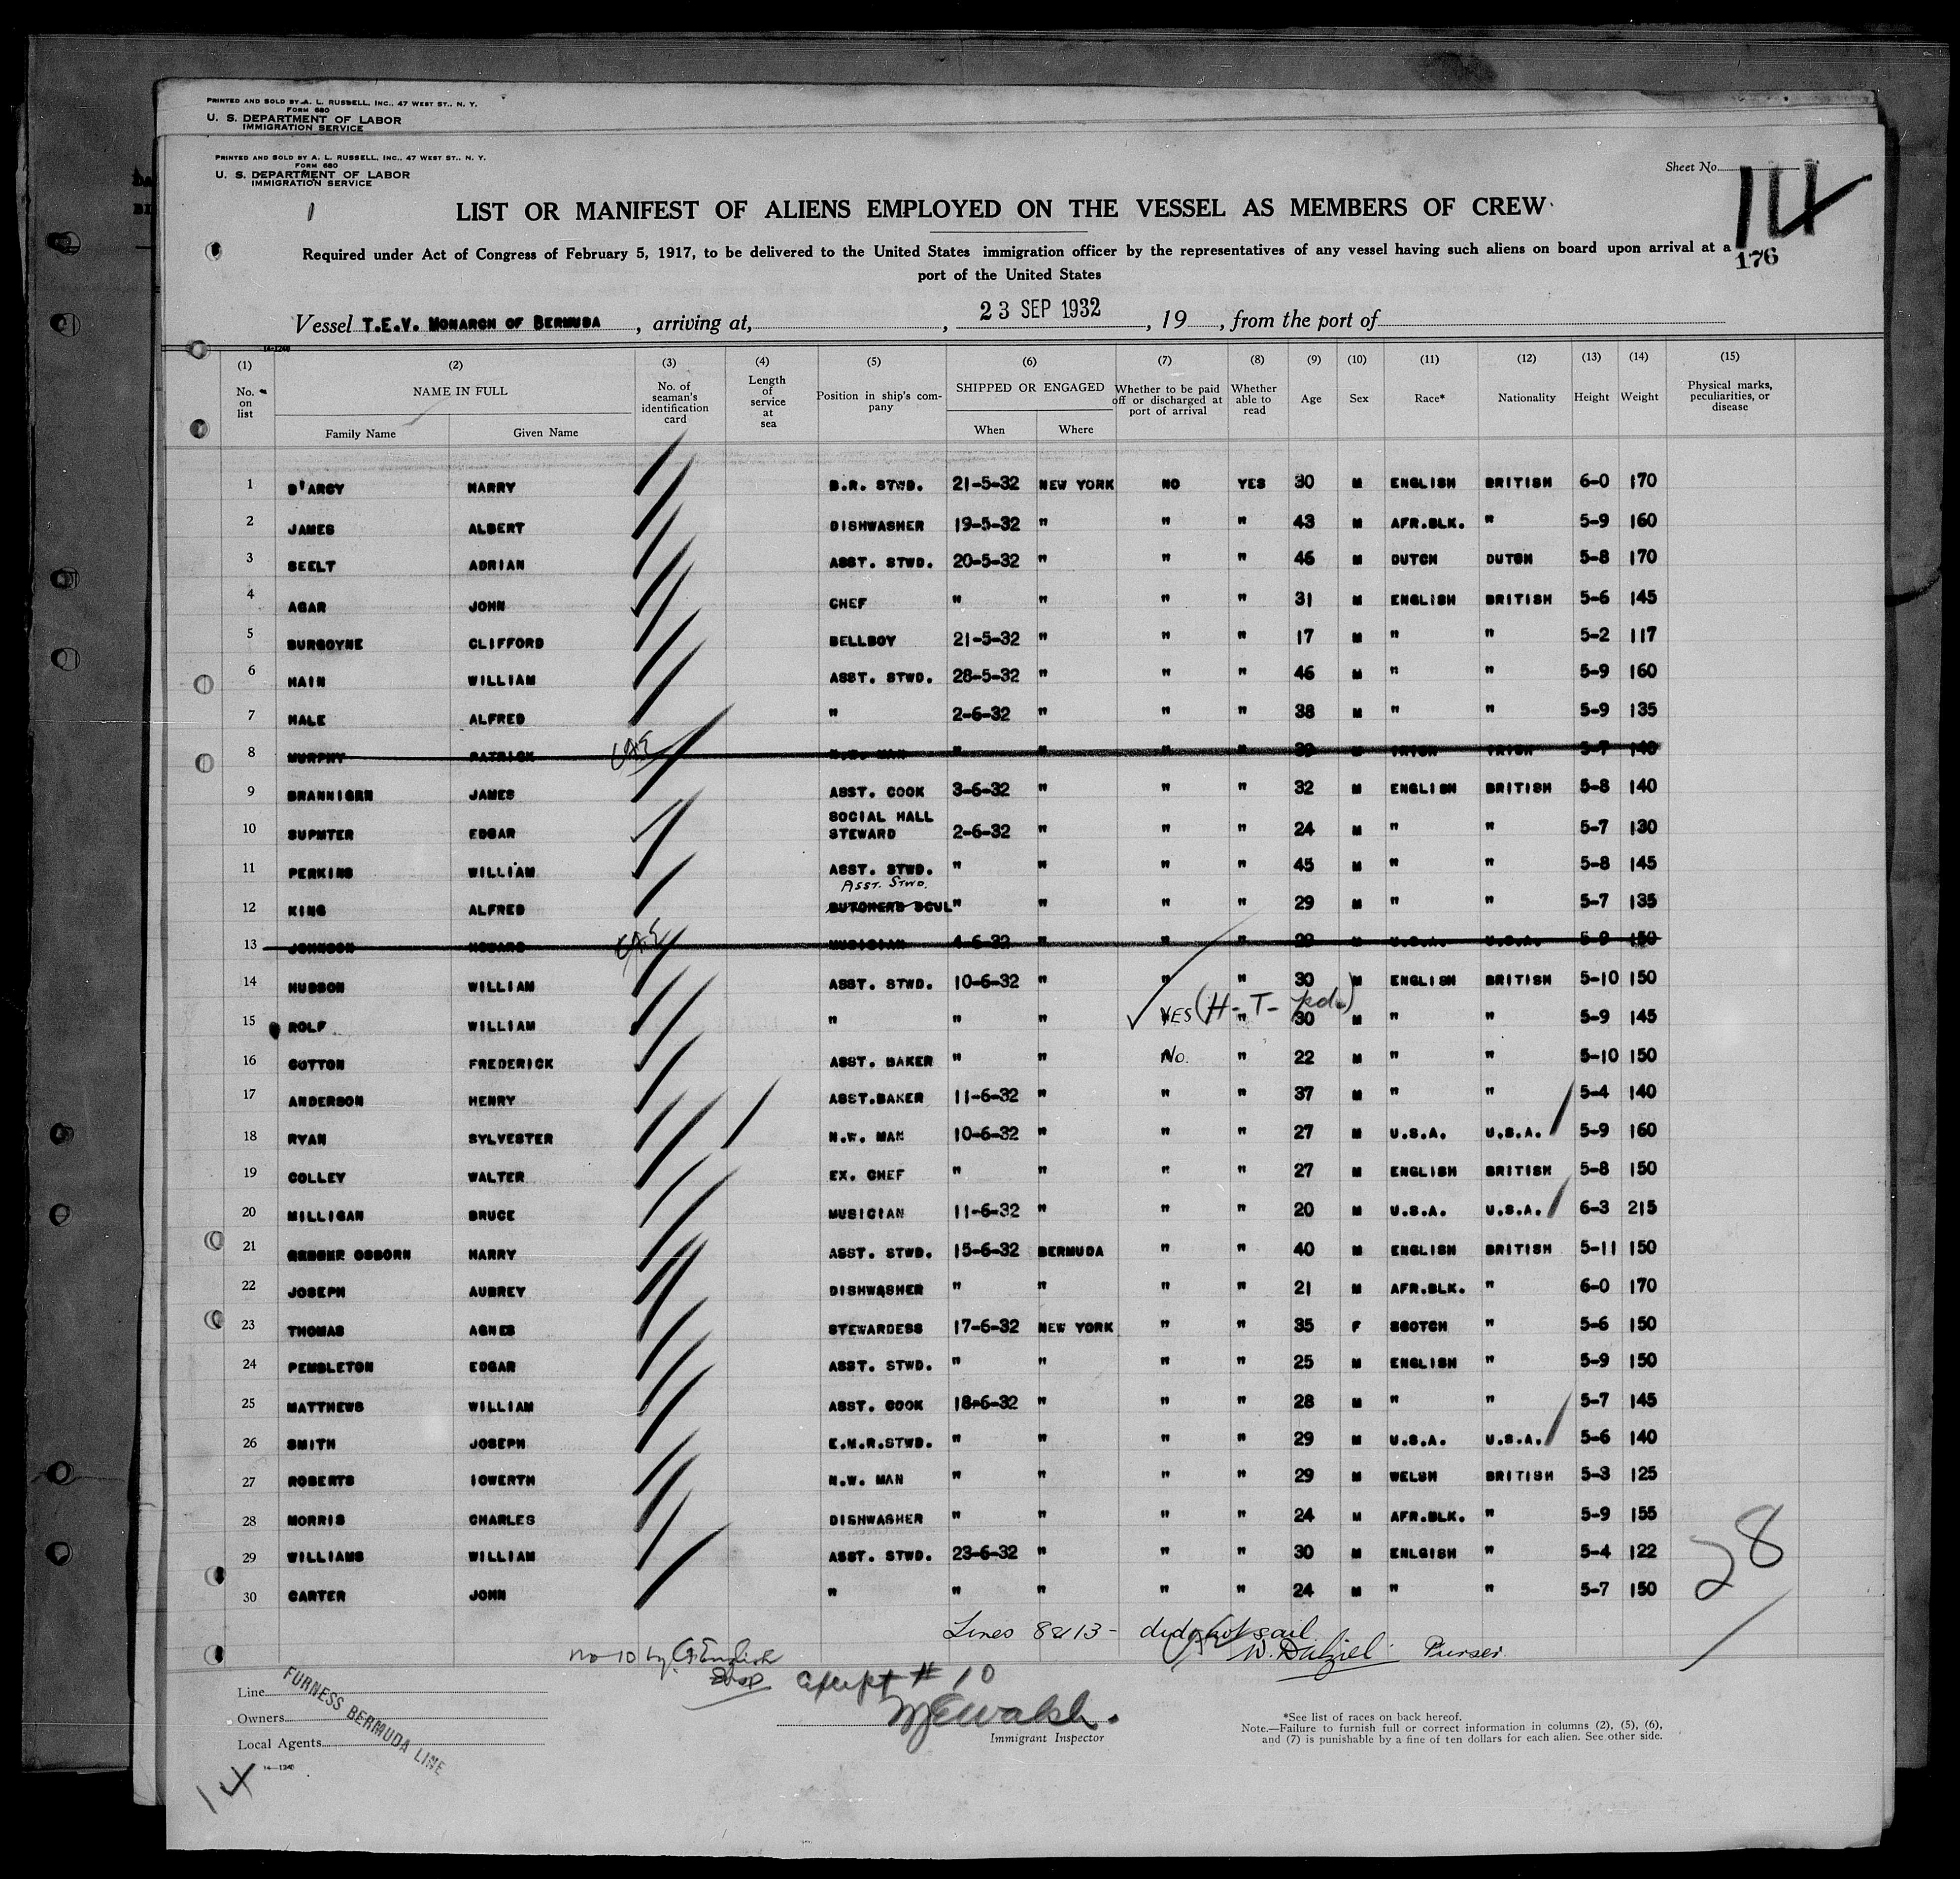 PRINTED AND SOLD BY A. L. RUSSELL, INC., 47 WEST ST., N. Y.
FORM 680
U. S. DEPARTMENT OF LABOR
IMMIGRATION SERVICE
PRINTED AND SOLD BY A. L. RUSSELL, INC., 47 WEST ST., N. Y.
FORM 680
U. S. DEPARTMENT OF LABOR
IMMIGRATION SERVICE
Sheet No. 14
176
LIST OR MANIFEST OF ALIENS EMPLOYED ON THE VESSEL AS MEMBERS OF CREW
Required under Act of Congress of February 5, 1917, to be delivered to the United States immigration officer by the representatives of any vessel having such aliens on board upon arrival at a
port of the United States
Vessel T.E.V. MONARCH OF BERMUDA, arriving at, , 23 SEP 1932, 19 , from the port of
14-1240
(1) (2) (3) (4) (5) (6) (7) (8) (9) (10) (11) (12) (13) (14) (15)
No. on list NAME IN FULL No. of seaman's identification card Length of service at sea Position in ship's company SHIPPED OR ENGAGED Whether to be paid off or discharged at port of arrival Whether able to read Age Sex Race* Nationality Height Weight Physical marks, peculiarities, or disease
Family Name Given Name When Where
1 D'ARCY HARRY D.R. STWD. 21-5-32 NEW YORK NO YES 30 M ENGLISH BRITISH 6-0 170
2 JAMES ALBERT DISHWASHER 19-5-32 " " " 43 M AFR.BLK. " 5-9 160
3 SEELT ADRIAN ASST. STWD. 20-5-32 " " " 46 M DUTCH DUTCH 5-8 170
4 AGAR JOHN CHEF " " " " 31 M ENGLISH BRITISH 5-6 145
5 BURGOYNE CLIFFORD BELLBOY 21-5-32 " " " 17 M " " 5-2 117
6 HAIN WILLIAM ASST. STWD. 28-5-32 " " " 46 M " " 5-9 160
7 HALE ALFRED " 2-6-32 " " " 38 M " " 5-9 135
8 MURPHY PATRICK N.W. MAN " " " " 39 M IRISH IRISH 5-7 140
9 BRANNIGAN JAMES ASST. COOK 3-6-32 " " " 32 M ENGLISH BRITISH 5-8 140
10 SUPMTER EDGAR SOCIAL HALL STEWARD 2-6-32 " " " 24 M " " 5-7 130
11 PERKINS WILLIAM ASST. STWD. " " " " 45 M " " 5-8 145
ASST. STWD.
12 KING ALFRED BUTCHERS SCUL " " " " 29 M " " 5-7 135
13 JOHNSON HOWARD MUSICIAN 4-6-32 " " " 29 M U.S.A. U.S.A. 5-9 150
14 HUDSON WILLIAM ASST. STWD. 10-6-32 " " " 30 M ENGLISH BRITISH 5-10 150
15 ROLF WILLIAM " " " YES (H-T-pd.) " 30 M " " 5-9 145
16 COTTON FREDERICK ASST. BAKER " " No. " 22 M " " 5-10 150
17 ANDERSON HENRY ASST.BAKER 11-6-32 " " " 37 M " " 5-4 140
18 RYAN SYLVESTER N.W. MAN 10-6-32 " " " 27 M U.S.A. U.S.A. 5-9 160
19 COLLEY WALTER EX. CHEF " " " " 27 M ENGLISH BRITISH 5-8 150
20 MILLIGAN BRUCE MUSICIAN 11-6-32 " " " 20 M U.S.A. U.S.A. 6-3 215
21 OSBORN HARRY ASST. STWD. 15-6-32 BERMUDA " " 40 M ENGLISH BRITISH 5-11 150
22 JOSEPH AUBREY DISHWASHER " " " " 21 M AFR.BLK. " 6-0 170
23 THOMAS AGNES STEWARDESS 17-6-32 NEW YORK " " 35 F SCOTCH " 5-6 150
24 PEMBLETON EDGAR ASST. STWD. " " " " 25 M ENGLISH " 5-9 150
25 MATTHEWS WILLIAM ASST. COOK 18-6-32 " " " 28 M " " 5-7 145
26 SMITH JOSEPH E.M.R.STWD. " " " " 29 M U.S.A. U.S.A. 5-6 140
27 ROBERTS IOWERTH N.W. MAN " " " " 29 M WELSH BRITISH 5-3 125
28 MORRIS CHARLES DISHWASHER " " " " 24 M AFR.BLK. " 5-9 155
29 WILLIAMS WILLIAM ASST. STWD. 23-6-32 " " " 30 M ENLGISH " 5-4 122
30 CARTER JOHN " " " " " 24 M " " 5-7 150
28
Lines 8 & 13 - did not sail
W. Dalziel Purser
no 10 by G English
except # 10
Line
Owners
Local Agents
FURNESS BERMUDA LINE
McWalsh.
Immigrant Inspector
*See list of races on back hereof.
Note.—Failure to furnish full or correct information in columns (2), (5), (6),
and (7) is punishable by a fine of ten dollars for each alien. See other side.
14—1240
14